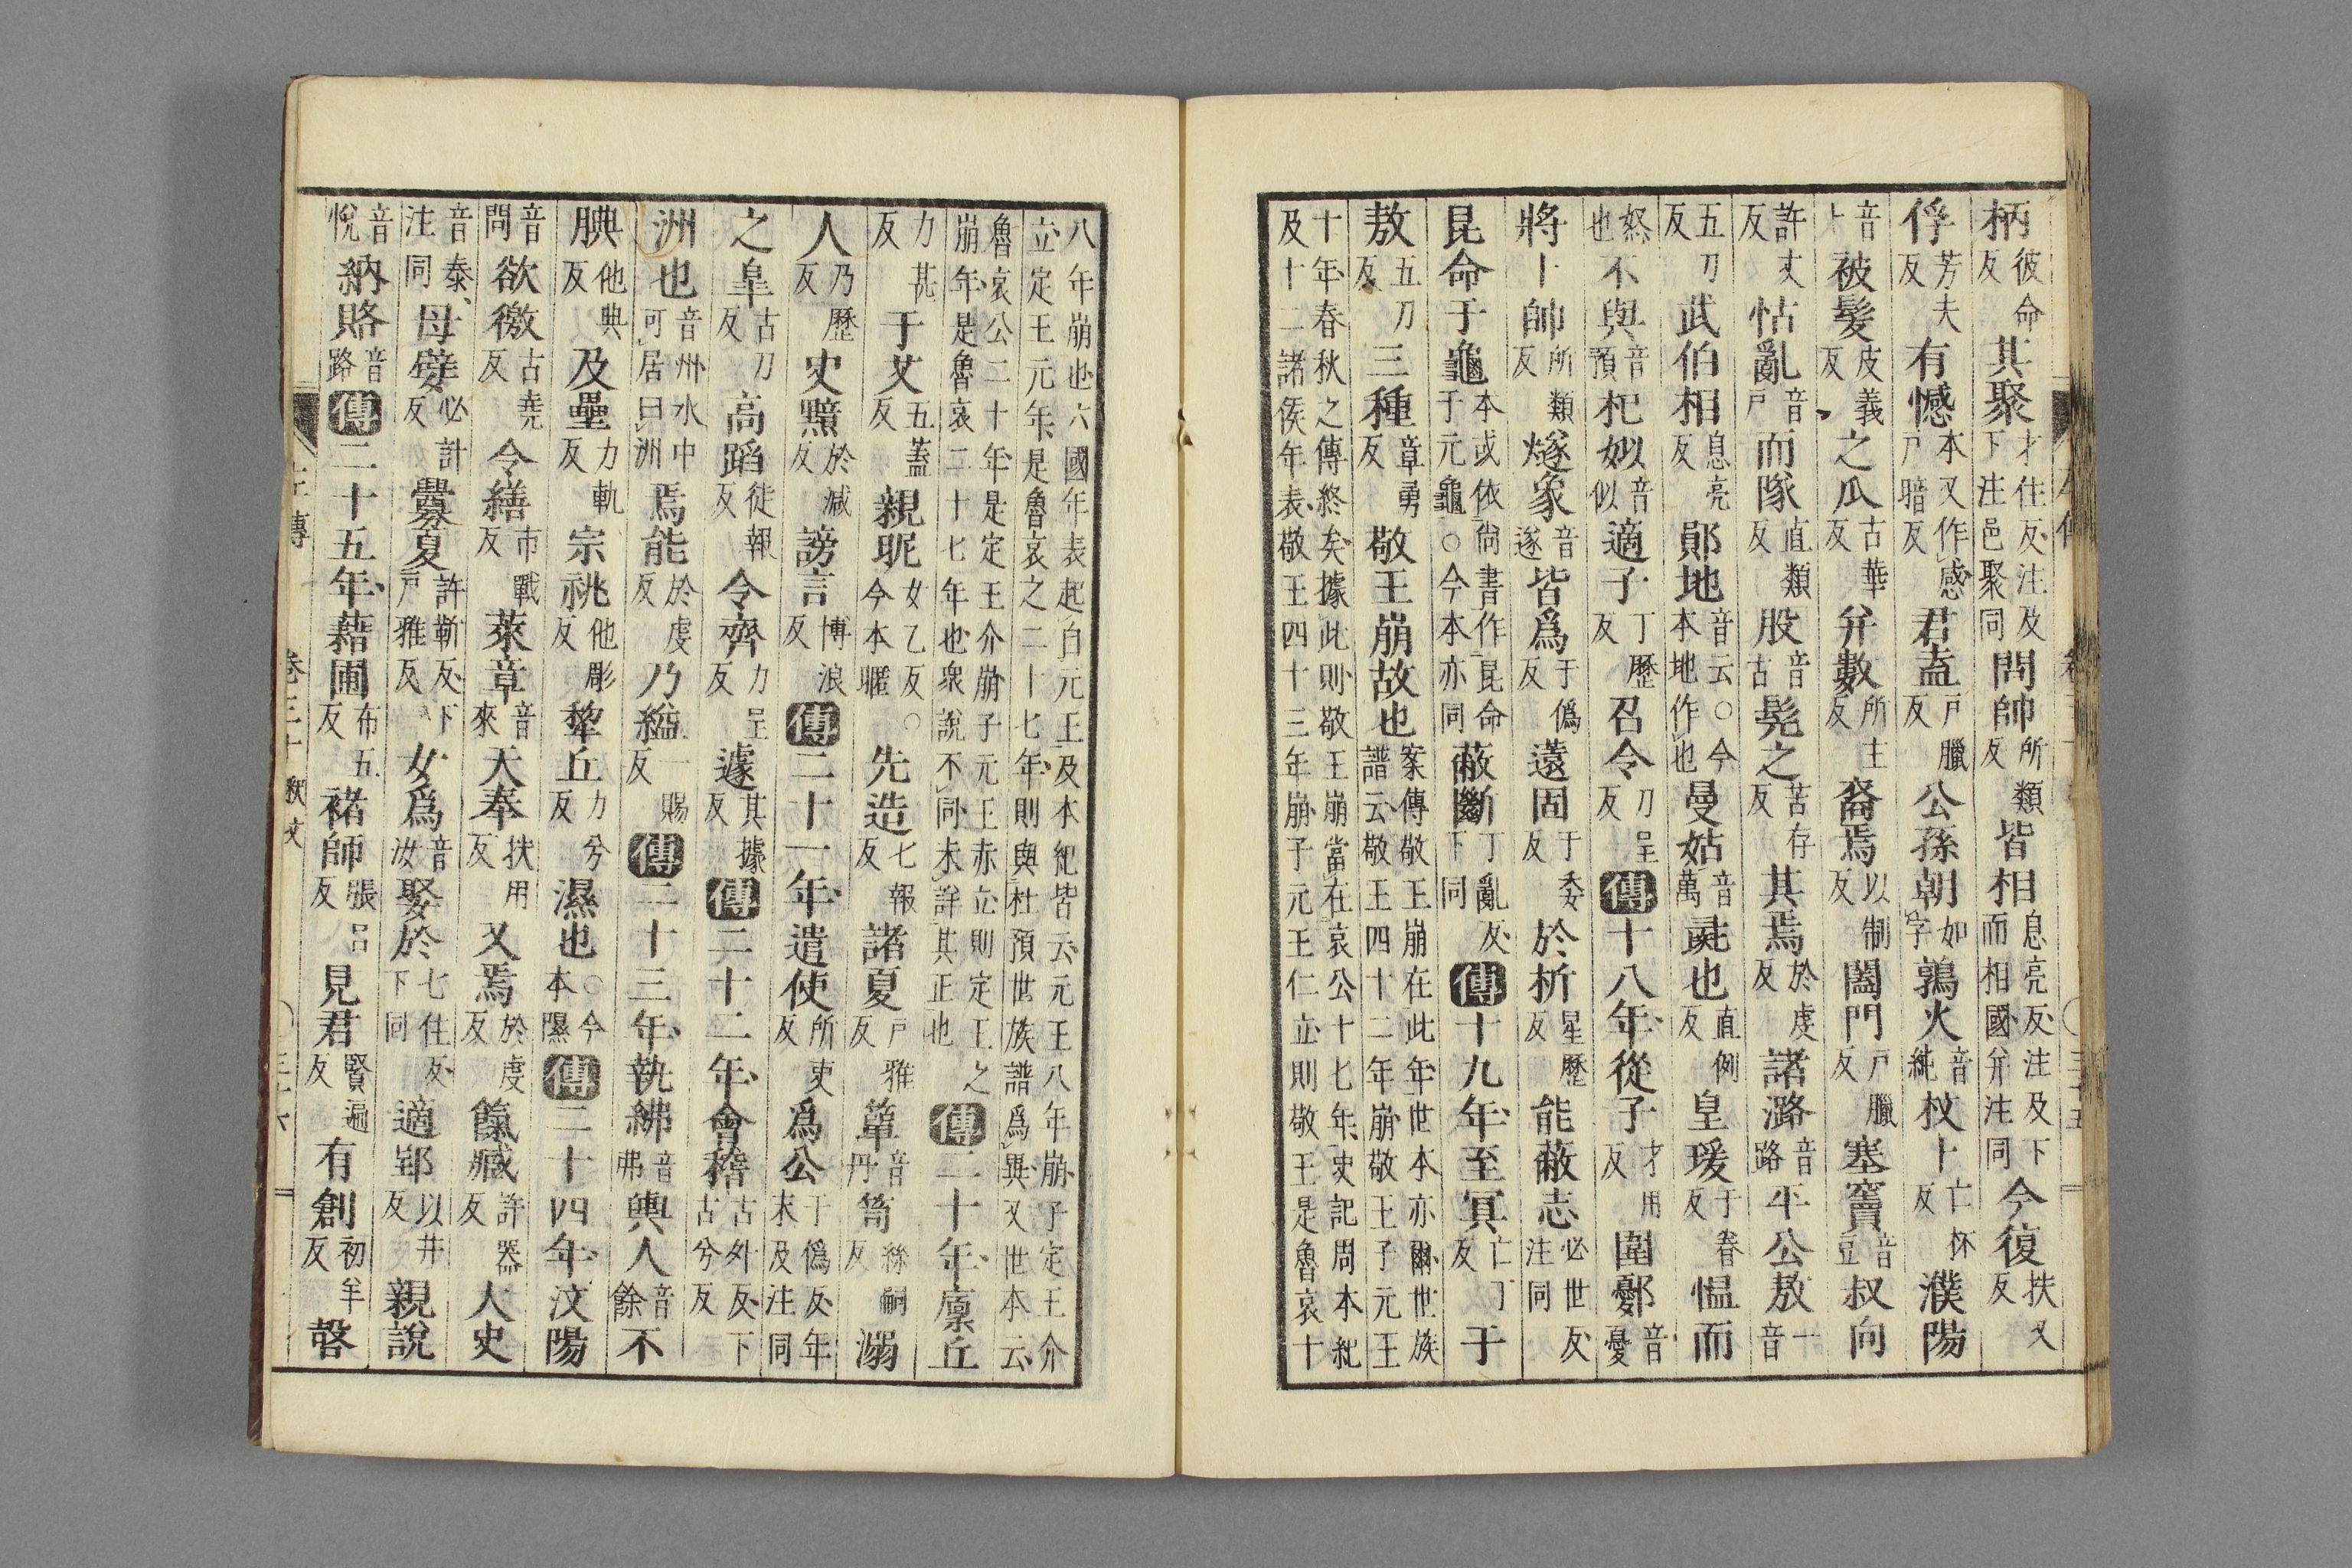 柄彼命反其聚才住反注及下注邑聚同問帥所類反皆相息亮反注及下而相國弁注同今復扶又反
俘芳夫反有憾本又作感戸暗反君盍戸臘反公孫朝如字鶉火音純枚卜亡杯反濮陽
音卜被髮皮義反之瓜古華反弁數所主反裔焉以制反闔門戸臘反塞竇音豆叔向
許丈反怙亂音戸而隊直類反股音古髡之苦存反其焉於虔反諸潞音路平公敖一音
五刀反武伯相息亮反鄖地音云○今本地作也曼姑音萬彘也直例反皇瑗于眷反慍而
怒也不與音預杞姒音似適子丁歷反召令力呈反傳十八年從子才用反圍鄾音憂
將卜帥所類反燧象音遂皆爲于僞反薳固于委反於析星歷反能蔽志必世反注同
昆命于龜本或依尚書作昆命于元龜○今本亦同蔽斷丁亂反下同傳十九年至冥亡丁反于
敖五刀反三種章勇反敬王崩故也案傳敬王崩在此年世本亦爾世族譜云敬王四十二年崩敬王子元王
十年春秋之傳終矣據此則敬王崩當在哀公十七年史記周本紀及十二諸侯年表敬王四十三年崩子元王仁立則敬王是魯哀十
八年崩也六國年表起自元王及本紀皆云元王八年崩子定王介立定王元年是魯哀之二十七年則與杜預世族譜爲異又世本云
魯哀公二十年是定王介崩子元王赤立則定王之崩年是魯哀二十七年也衆說不同未詳其正也傳二十年廩丘
力甚反于艾五蓋反親昵女乙反○今本暱先造七報反諸夏戸雅反簞音丹笥絲嗣反溺
人乃歷反史黶於減反謗言博浪反傳二十一年遣使所吏反爲公于僞反年末及注同
之皐古刀反高蹈徒報反令齊力呈反遽其據反傳二十二年會稽古外反下古兮反
洲也音州水中可居曰洲焉能於虔反乃縊一賜反傳二十三年執紼音弗輿人音餘不
腆他典反及壘力軌反宗祧他彫反犂丘力兮反濕也○今本隰傳二十四年汶陽
音問欲徼古堯反令繕市戰反萊章音來天奉扶用反又焉於虔反餼臧許器反人史
音泰注同母嬖必計反釁夏許靳反下戸雅反女爲音汝娶於七住反下同適郢以井反親說
音悅納賂音路傳二十五年藉圃布五反褚師張呂反見君賢遍反有創初羊反𣪊